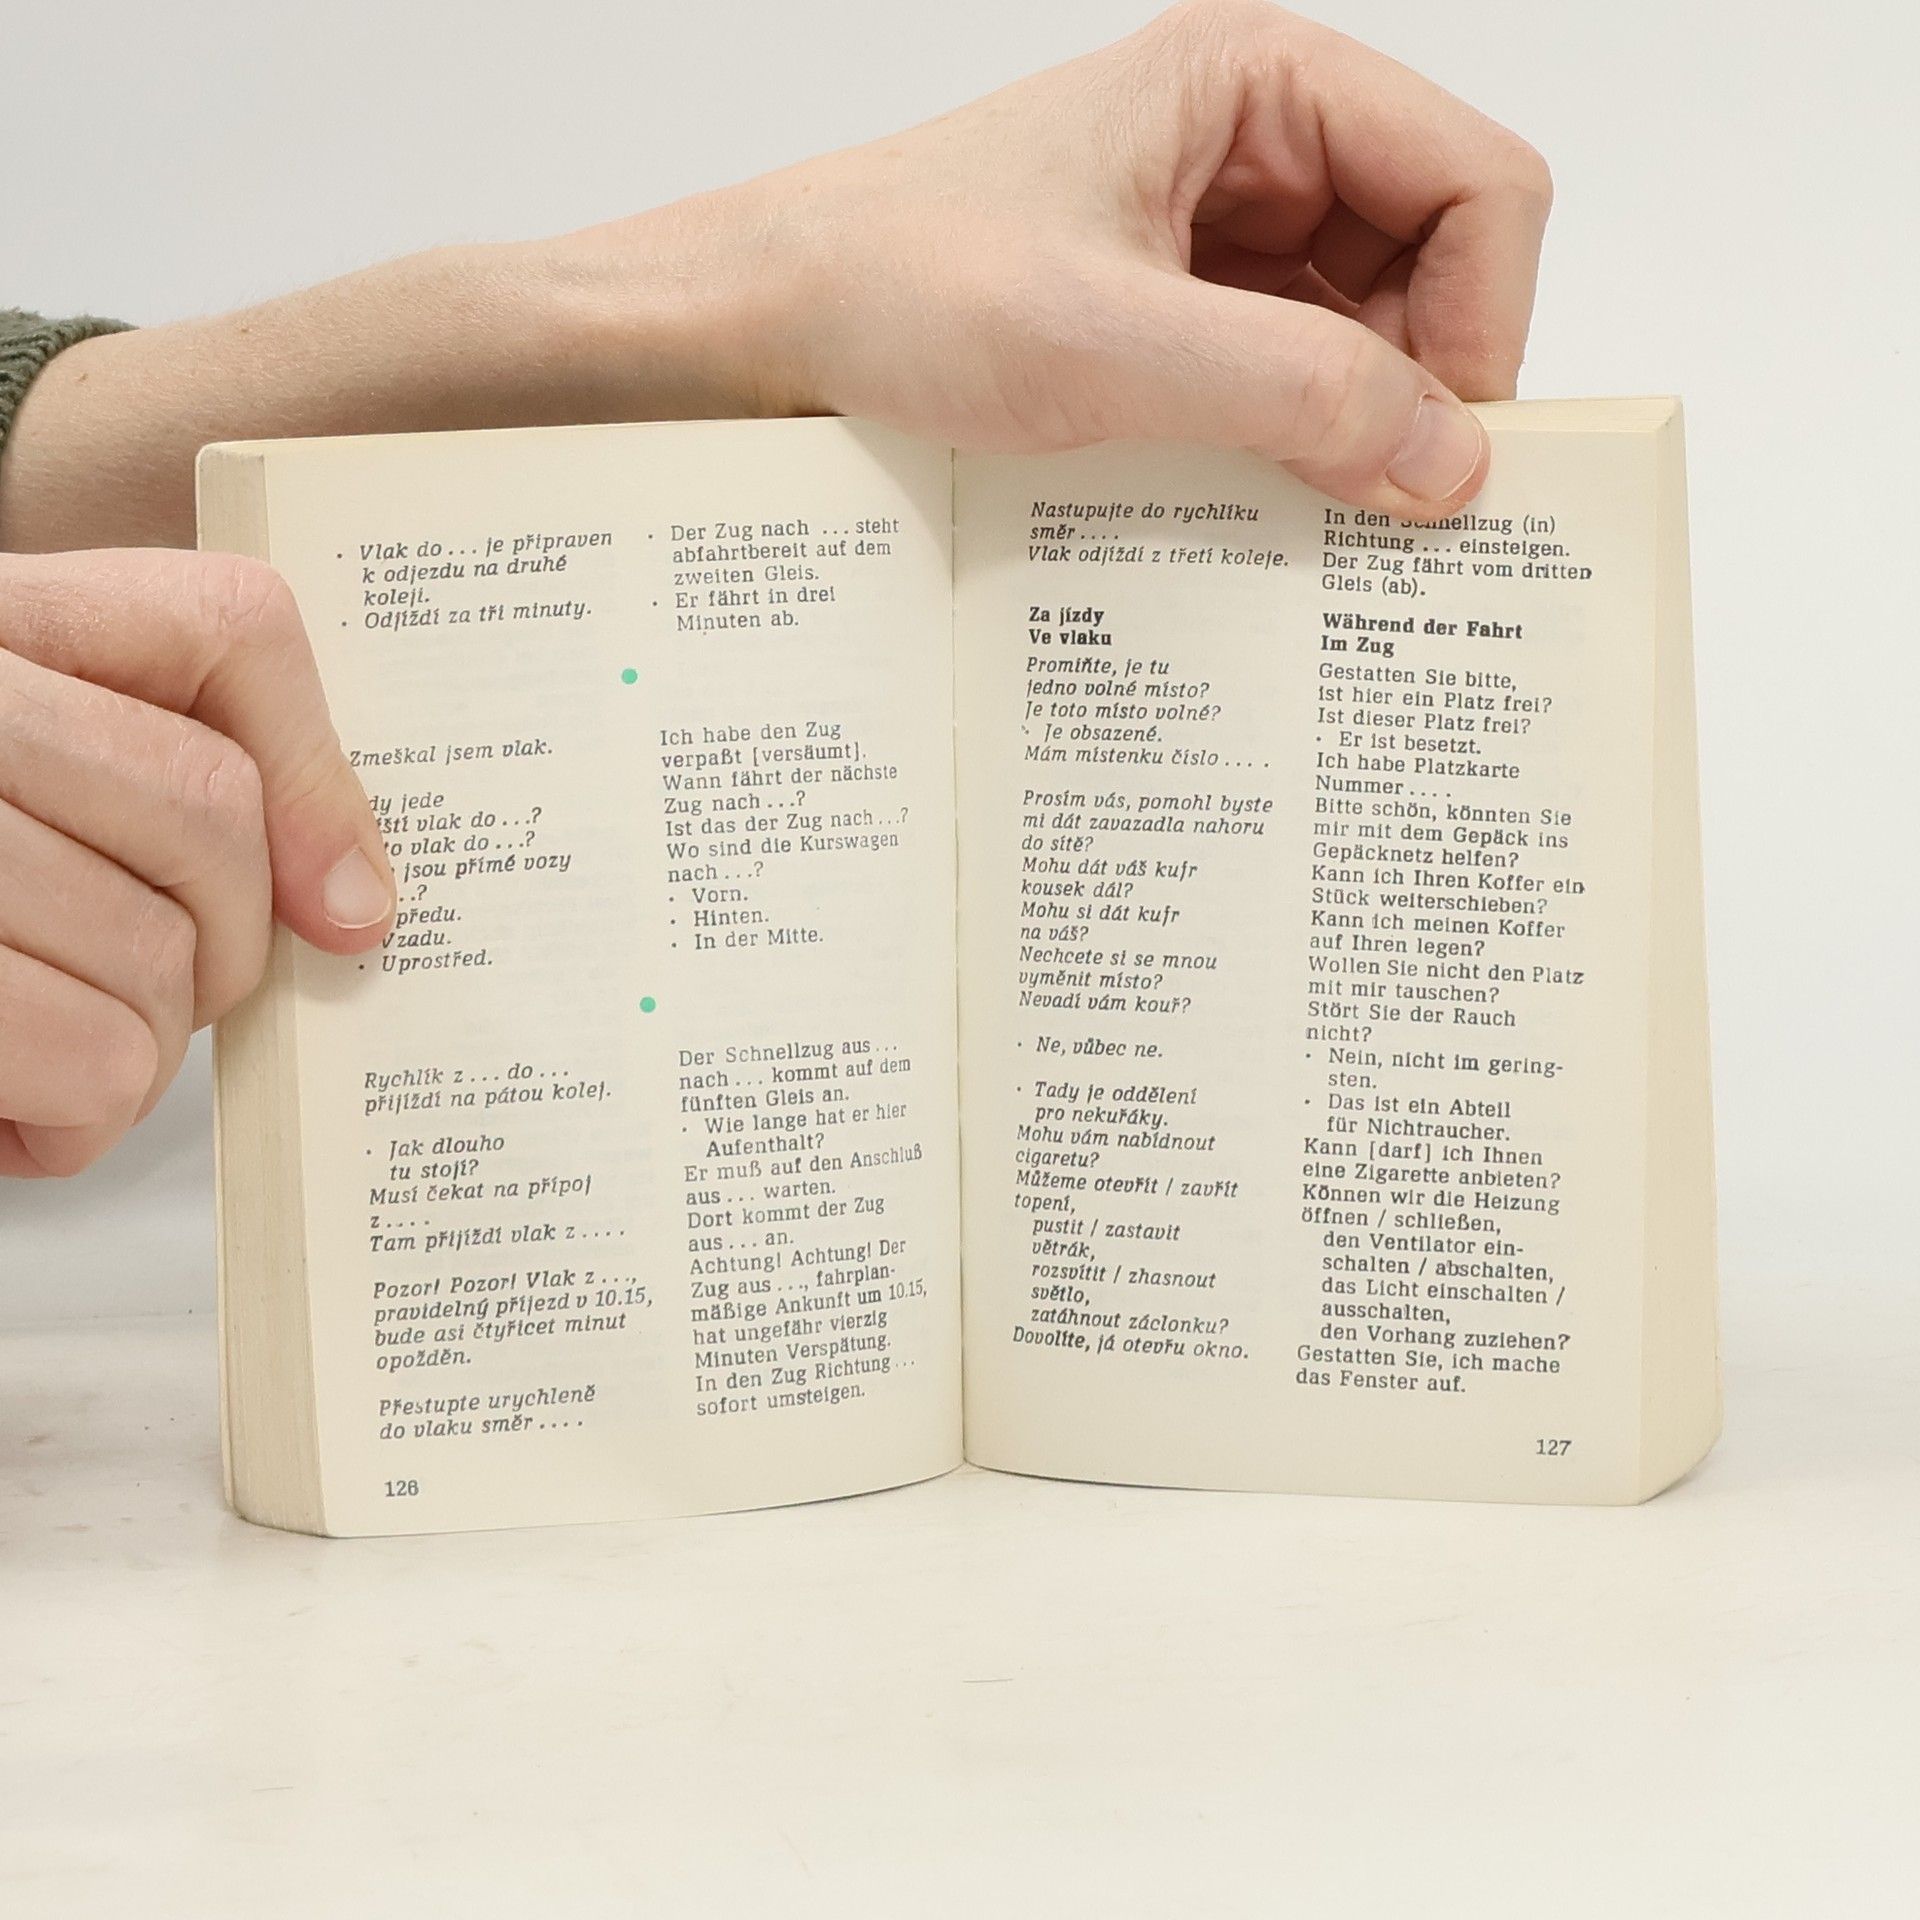 • Vlak do ... je připraven
k odjezdu na druhé
koleji.
• Odjíždí za tři minuty.
Zmeškal jsem vlak.
jede
vlak do ...?
vlak do ...?
jsou přímé vozy
..?
Vzadu.
• Uprostřed.
Rychlík z ... do ...
přijíždí na pátou kolej.
• Jak dlouho
tu stojí?
Musí čekat na přípoj
z ....
Tam přijíždí vlak z ....
Pozor! Pozor! Vlak z ...,
pravidelný příjezd v 10.15,
bude asi čtyřicet minut
opožděn.
Přestupte urychleně
do vlaku směr ....
126
• Der Zug nach ... steht
abfahrtbereit auf dem
zweiten Gleis.
• Er fährt in drei
Minuten ab.
Ich habe den Zug
verpaßt [versäumt].
Wann fährt der nächste
Zug nach ...?
Ist das der Zug nach ...?
Wo sind die Kurswagen
nach ...?
• Vorn.
• Hinten.
• In der Mitte.
Der Schnellzug aus ...
nach ... kommt auf dem
fünften Gleis an.
• Wie lange hat er hier
Aufenthalt?
Er muß auf den Anschluß
aus ... warten.
Dort kommt der Zug
aus ... an.
Achtung! Achtung! Der
Zug aus ..., fahrplan-
mäßige Ankunft um 10.15,
hat ungefähr vierzig
Minuten Verspätung.
In den Zug Richtung ...
sofort umsteigen.
Nastupujte do rychlíku
směr ....
Vlak odjíždí z třetí koleje.
Za jízdy
Ve vlaku
Promiňte, je tu
jedno volné místo?
Je toto místo volné?
• Je obsazené.
Mám místenku číslo ....
Prosím vás, pomohl byste
mi dát zavazadla nahoru
do sítě?
Mohu dát váš kufr
kousek dál?
Mohu si dát kufr
na váš?
Nechcete si se mnou
vyměnit místo?
Nevadí vám kouř?
• Ne, vůbec ne.
• Tady je oddělení
pro nekuřáky.
Mohu vám nabídnout
cigaretu?
Můžeme otevřít / zavřít
topení,
pustit / zastavit
větrák,
rozsvítit / zhasnout
světlo,
zatáhnout záclonku?
Dovolíte, já otevřu okno.
In den Schnellzug (in)
Richtung ... einsteigen.
Der Zug fährt vom dritten
Gleis (ab).
Während der Fahrt
Im Zug
Gestatten Sie bitte,
ist hier ein Platz frei?
Ist dieser Platz frei?
• Er ist besetzt.
Ich habe Platzkarte
Nummer ....
Bitte schön, könnten Sie
mir mit dem Gepäck ins
Gepäcknetz helfen?
Kann ich Ihren Koffer ein
Stück weiterschieben?
Kann ich meinen Koffer
auf Ihren legen?
Wollen Sie nicht den Platz
mit mir tauschen?
Stört Sie der Rauch
nicht?
• Nein, nicht im gering-
sten.
• Das ist ein Abteil
für Nichtraucher.
Kann [darf] ich Ihnen
eine Zigarette anbieten?
Können wir die Heizung
öffnen / schließen,
den Ventilator ein-
schalten / abschalten,
das Licht einschalten /
ausschalten,
den Vorhang zuziehen?
Gestatten Sie, ich mache
das Fenster auf.
127